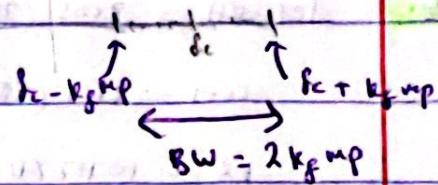 fc
fc - kf mp
fc + kf mp
BW = 2 kf mp